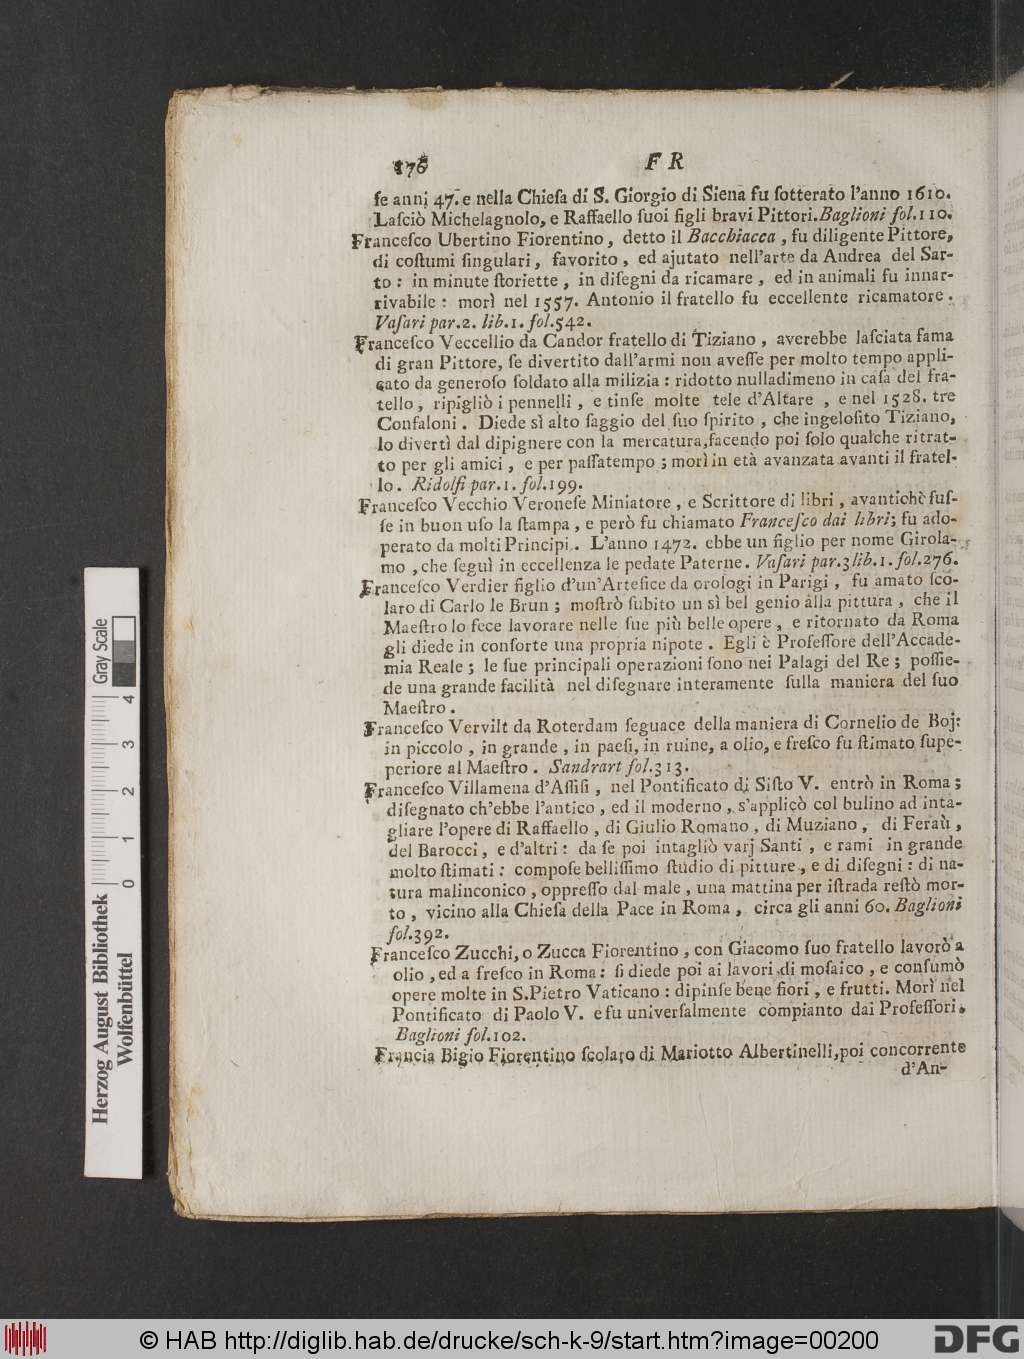 176 F R
ſe anni 47. e nella Chieſa di S. Giorgio di Siena fu ſotterato l'anno 1610.
Laſciò Michelagnolo, e Raffaello ſuoi figli bravi Pittori. Baglioni fol.110.
Franceſco Ubertino Fiorentino, detto il Bacchiacca, fu diligente Pittore,
di coſtumi ſingulari, favorito, ed ajutato nell'arte da Andrea del Sar-
to: in minute ſtoriette, in diſegni da ricamare, ed in animali fu innar-
rivabile: morì nel 1557. Antonio il fratello fu eccellente ricamatore.
Vaſari par.2. lib.1. fol.542.
Franceſco Veccellio da Candor fratello di Tiziano, averebbe laſciata fama
di gran Pittore, ſe divertito dall'armi non aveſſe per molto tempo appli-
cato da generoſo ſoldato alla milizia: ridotto nulladimeno in caſa del fra-
tello, ripigliò i pennelli, e tinſe molte tele d'Altare, e nel 1528. tre
Confaloni. Diede sì alto ſaggio del ſuo ſpirito, che ingeloſito Tiziano,
lo divertì dal dipignere con la mercatura, facendo poi ſolo qualche ritrat-
to per gli amici, e per paſſatempo; morì in età avanzata avanti il fratel-
lo. Ridolfi par.1. fol.199.
Franceſco Vecchio Veroneſe Miniatore, e Scrittore di libri, avantichè fuſ-
ſe in buon uſo la ſtampa, e però fu chiamato Franceſco dai libri; fu ado-
perato da molti Principi. L'anno 1472. ebbe un figlio per nome Girola-
mo, che ſeguì in eccellenza le pedate Paterne. Vaſari par.3 lib.1. fol.276.
Franceſco Verdier figlio d'un'Artefice da orologi in Parigi, fu amato ſco-
laro di Carlo le Brun; moſtrò ſubito un sì bel genio alla pittura, che il
Maeſtro lo fece lavorare nelle ſue più belle opere, e ritornato da Roma
gli diede in conſorte una propria nipote. Egli è Profeſſore dell'Accade-
mia Reale; le ſue principali operazioni ſono nei Palagi del Re; poſſie-
de una grande facilità nel diſegnare interamente ſulla maniera del ſuo
Maeſtro.
Franceſco Vervilt da Roterdam ſeguace della maniera di Cornelio de Boj:
in piccolo, in grande, in paeſi, in ruine, a olio, e freſco fu ſtimato ſupe-
periore al Maeſtro. Sandrart fol.313.
Franceſco Villamena d'Aſſiſi, nel Pontificato di Siſto V. entrò in Roma;
diſegnato ch'ebbe l'antico, ed il moderno, s'applicò col bulino ad inta-
gliare l'opere di Raffaello, di Giulio Romano, di Muziano, di Feraù,
del Barocci, e d'altri: da ſe poi intagliò varj Santi, e rami in grande
molto ſtimati: compoſe belliſſimo ſtudio di pitture, e di diſegni: di na-
tura malinconico, oppreſſo dal male, una mattina per iſtrada reſtò mor-
to, vicino alla Chieſa della Pace in Roma, circa gli anni 60. Baglioni
fol.392.
Franceſco Zucchi, o Zucca Fiorentino, con Giacomo ſuo fratello lavorò a
olio, ed a freſco in Roma: ſi diede poi ai lavori di moſaico, e conſumò
opere molte in S.Pietro Vaticano: dipinſe bene fiori, e frutti. Morì nel
Pontificato di Paolo V. e fu univerſalmente compianto dai Profeſſori.
Baglioni fol.102.
Francia Bigio Fiorentino ſcolaro di Mariotto Albertinelli, poi concorrente
d'An-
Herzog August Bibliothek
Wolfenbüttel
0 1 2 3 4
Gray Scale
© HAB http://diglib.hab.de/drucke/sch-k-9/start.htm?image=00200
DFG